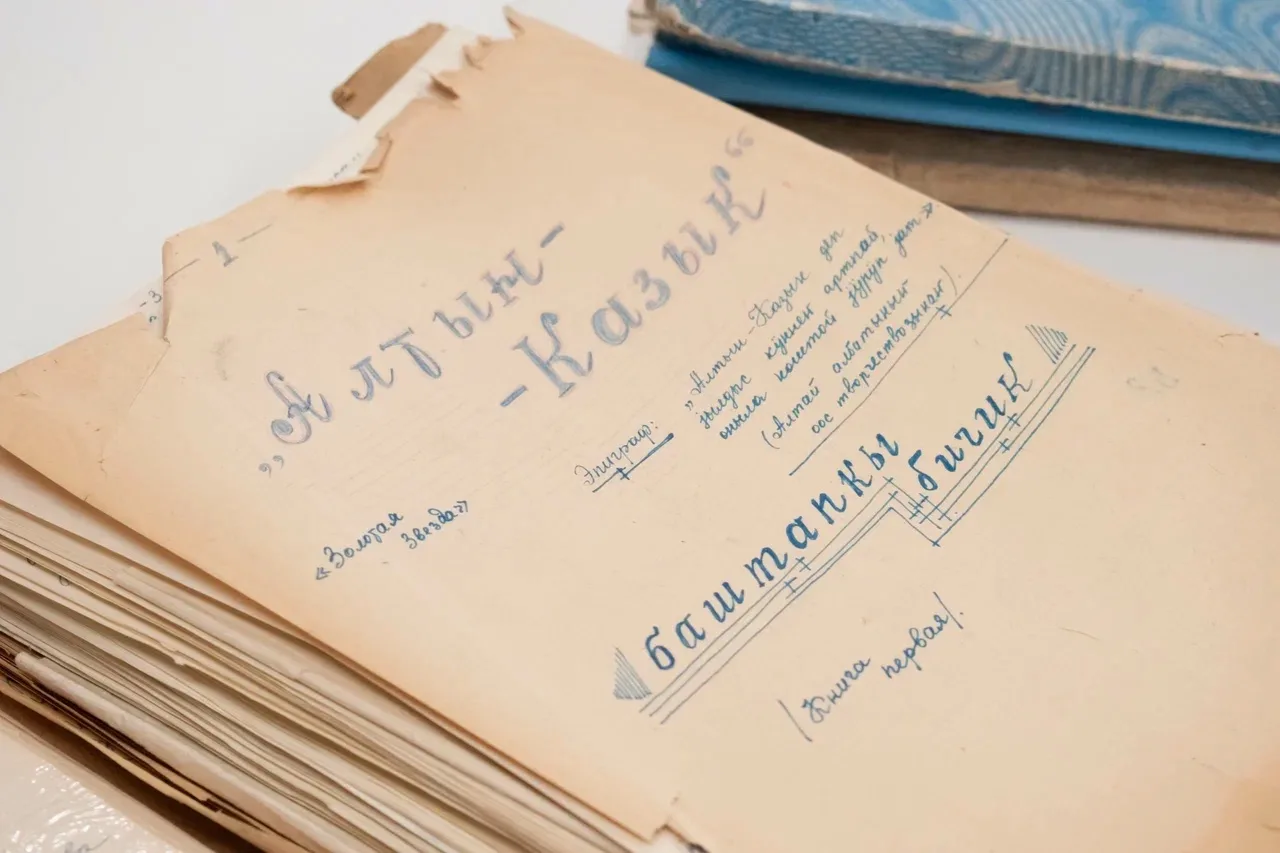 1 —
- 3
„Алтын-
-Казык“
Эпиграф: „Алтын-Казык деп
јылдыс кӱннеҥ артпай,
оныла коштой јӱрӱп јат».
(Алтай албатыныҥ
оос творчествозынаҥ).
«Золотая
Звезда»
баштапкы
бичик
/Книга
первая/.